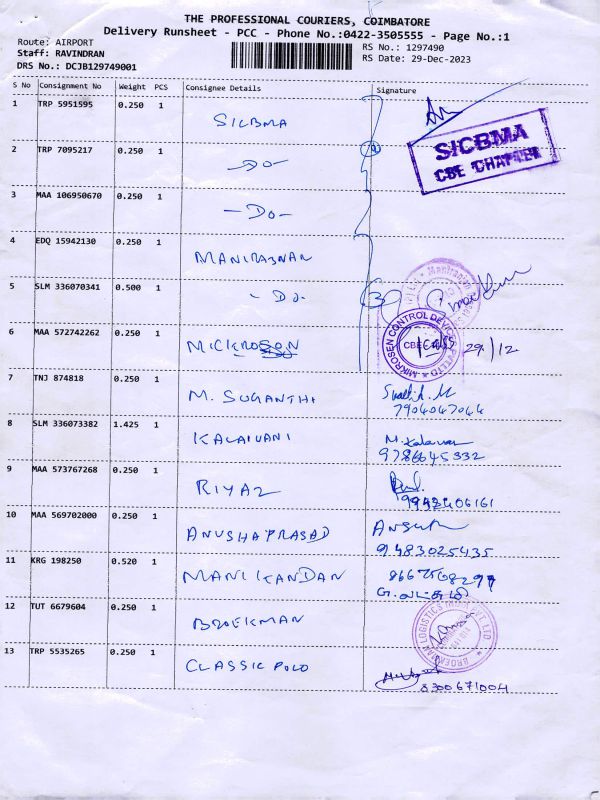 THE PROFESSIONAL COURIERS, COIMBATORE
Delivery Runsheet - PCC - Phone No.:0422-3505555 - Page No.:1
Route: AIRPORT
Staff: RAVINDRAN
DRS No.: DCJB129749001
RS No.: 1297490
RS Date: 29-Dec-2023
S No Consignment No Weight PCS Consignee Details Signature
1 TRP 5951595 0.250 1 SICBMA
SICBMA
CBE CHAPTER
2 TRP 7095217 0.250 1 -Do-
3 MAA 106950670 0.250 1 -Do-
4 EDQ 15942130 0.250 1
5 SLM 336070341 0.500 1 - Do.
MIKROSEN CONTROL DEVICES PVT LTD
CBE
29/12
6 MAA 572742262 0.250 1
7 TNJ 874818 0.250 1 M. SUGANTHI
7904047044
8 SLM 336073382 1.425 1 KALAIVANI
9786645332
9 MAA 573767268 0.250 1 RIYAZ
10 MAA 569702000 0.250 1 ANUSHAPRASAD
9483025435
11 KRG 198250 0.520 1 MANIKANDAN
12 TUT 6679604 0.250 1 BROEKMAN
BROEKMAN LOGISTICS INDIA PVT LTD
13 TRP 5535265 0.250 1 CLASSIC POLO
8300671004